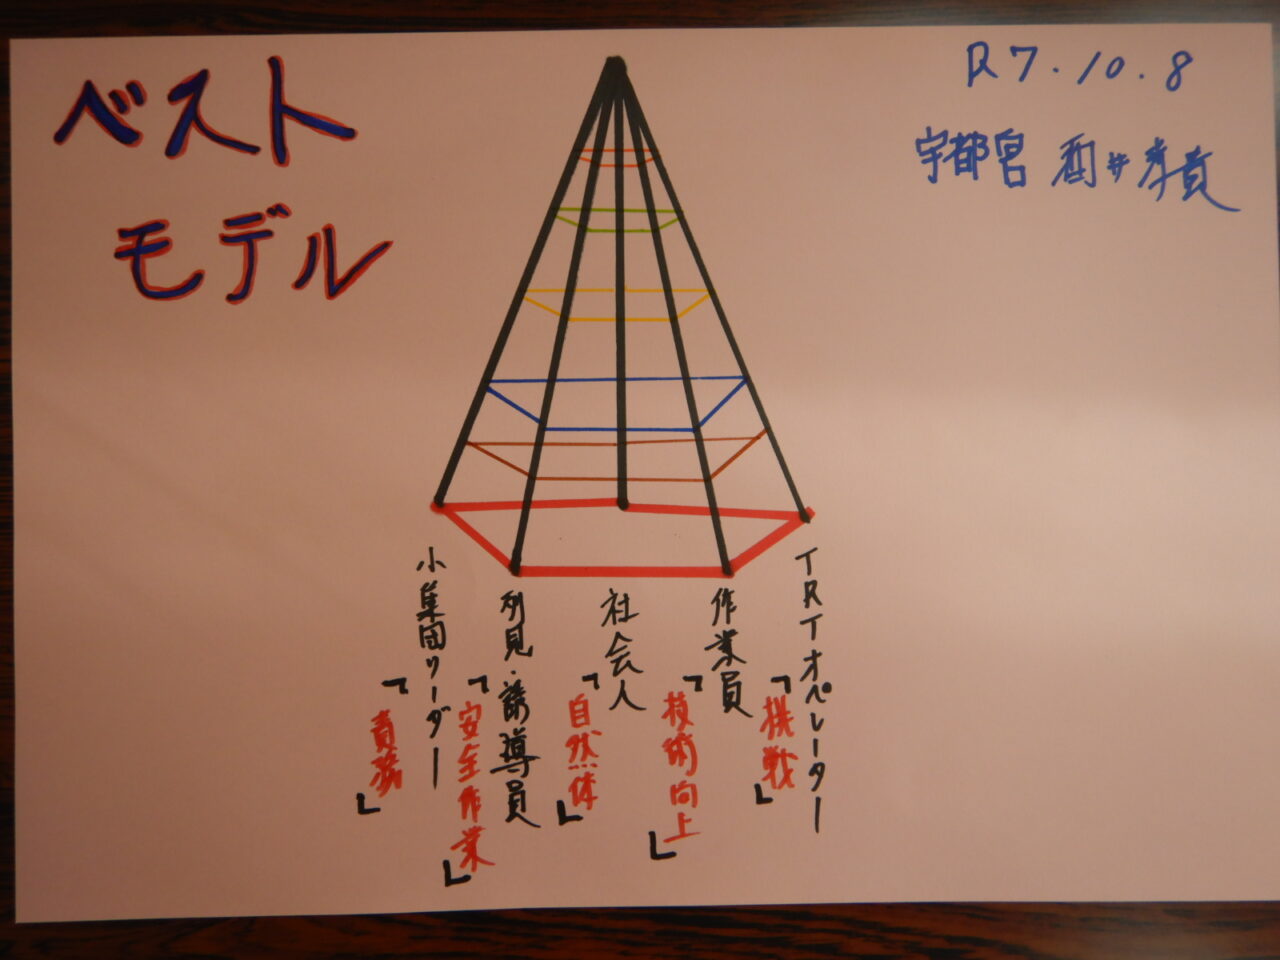 ベスト
モデル
R7.10.8
宇都宮 酒井孝貴
TRTオペレーター
「挑戦」
作業員
「技術向上」
社会人
「自然体」
列見・誘導員
「安全作業」
小集団リーダー
「責務」